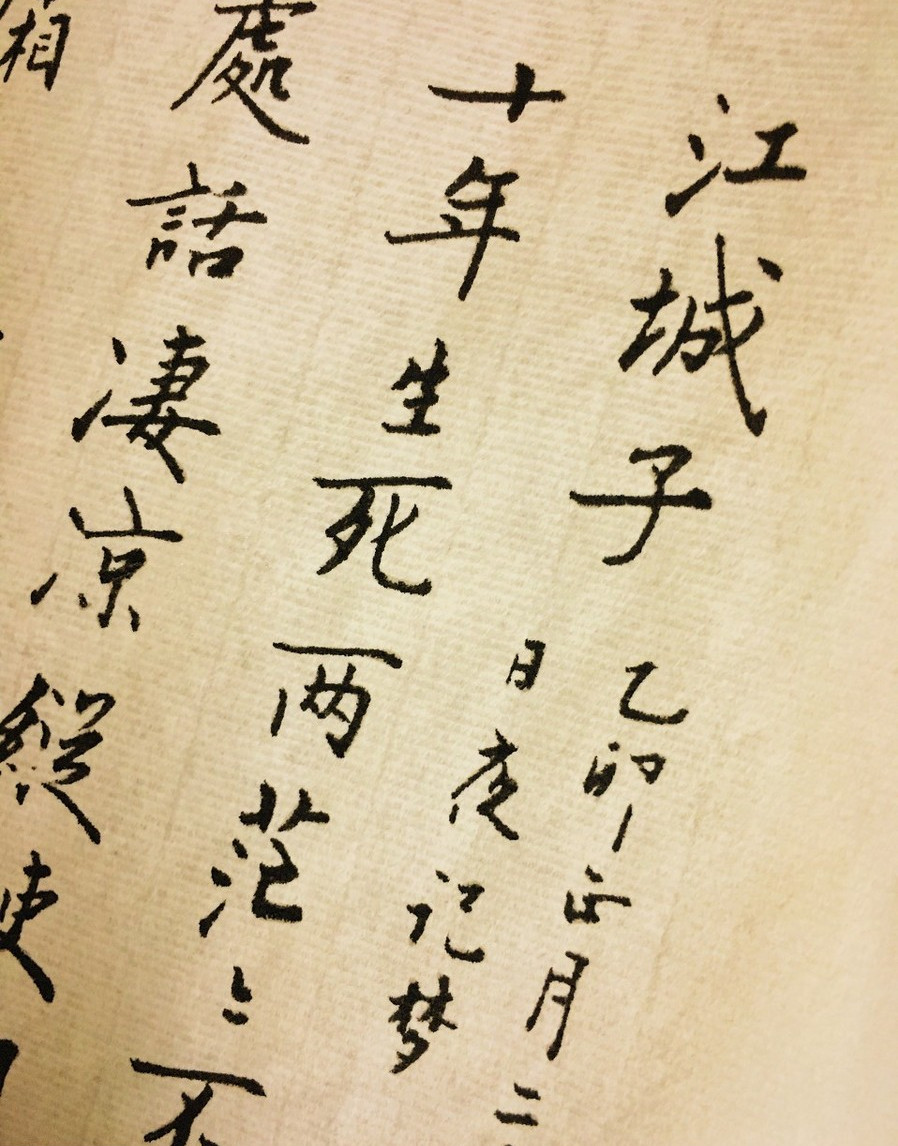 江城子
乙卯正月二
日夜记梦
十年生死两茫〻不
處話凄凉縱使
相